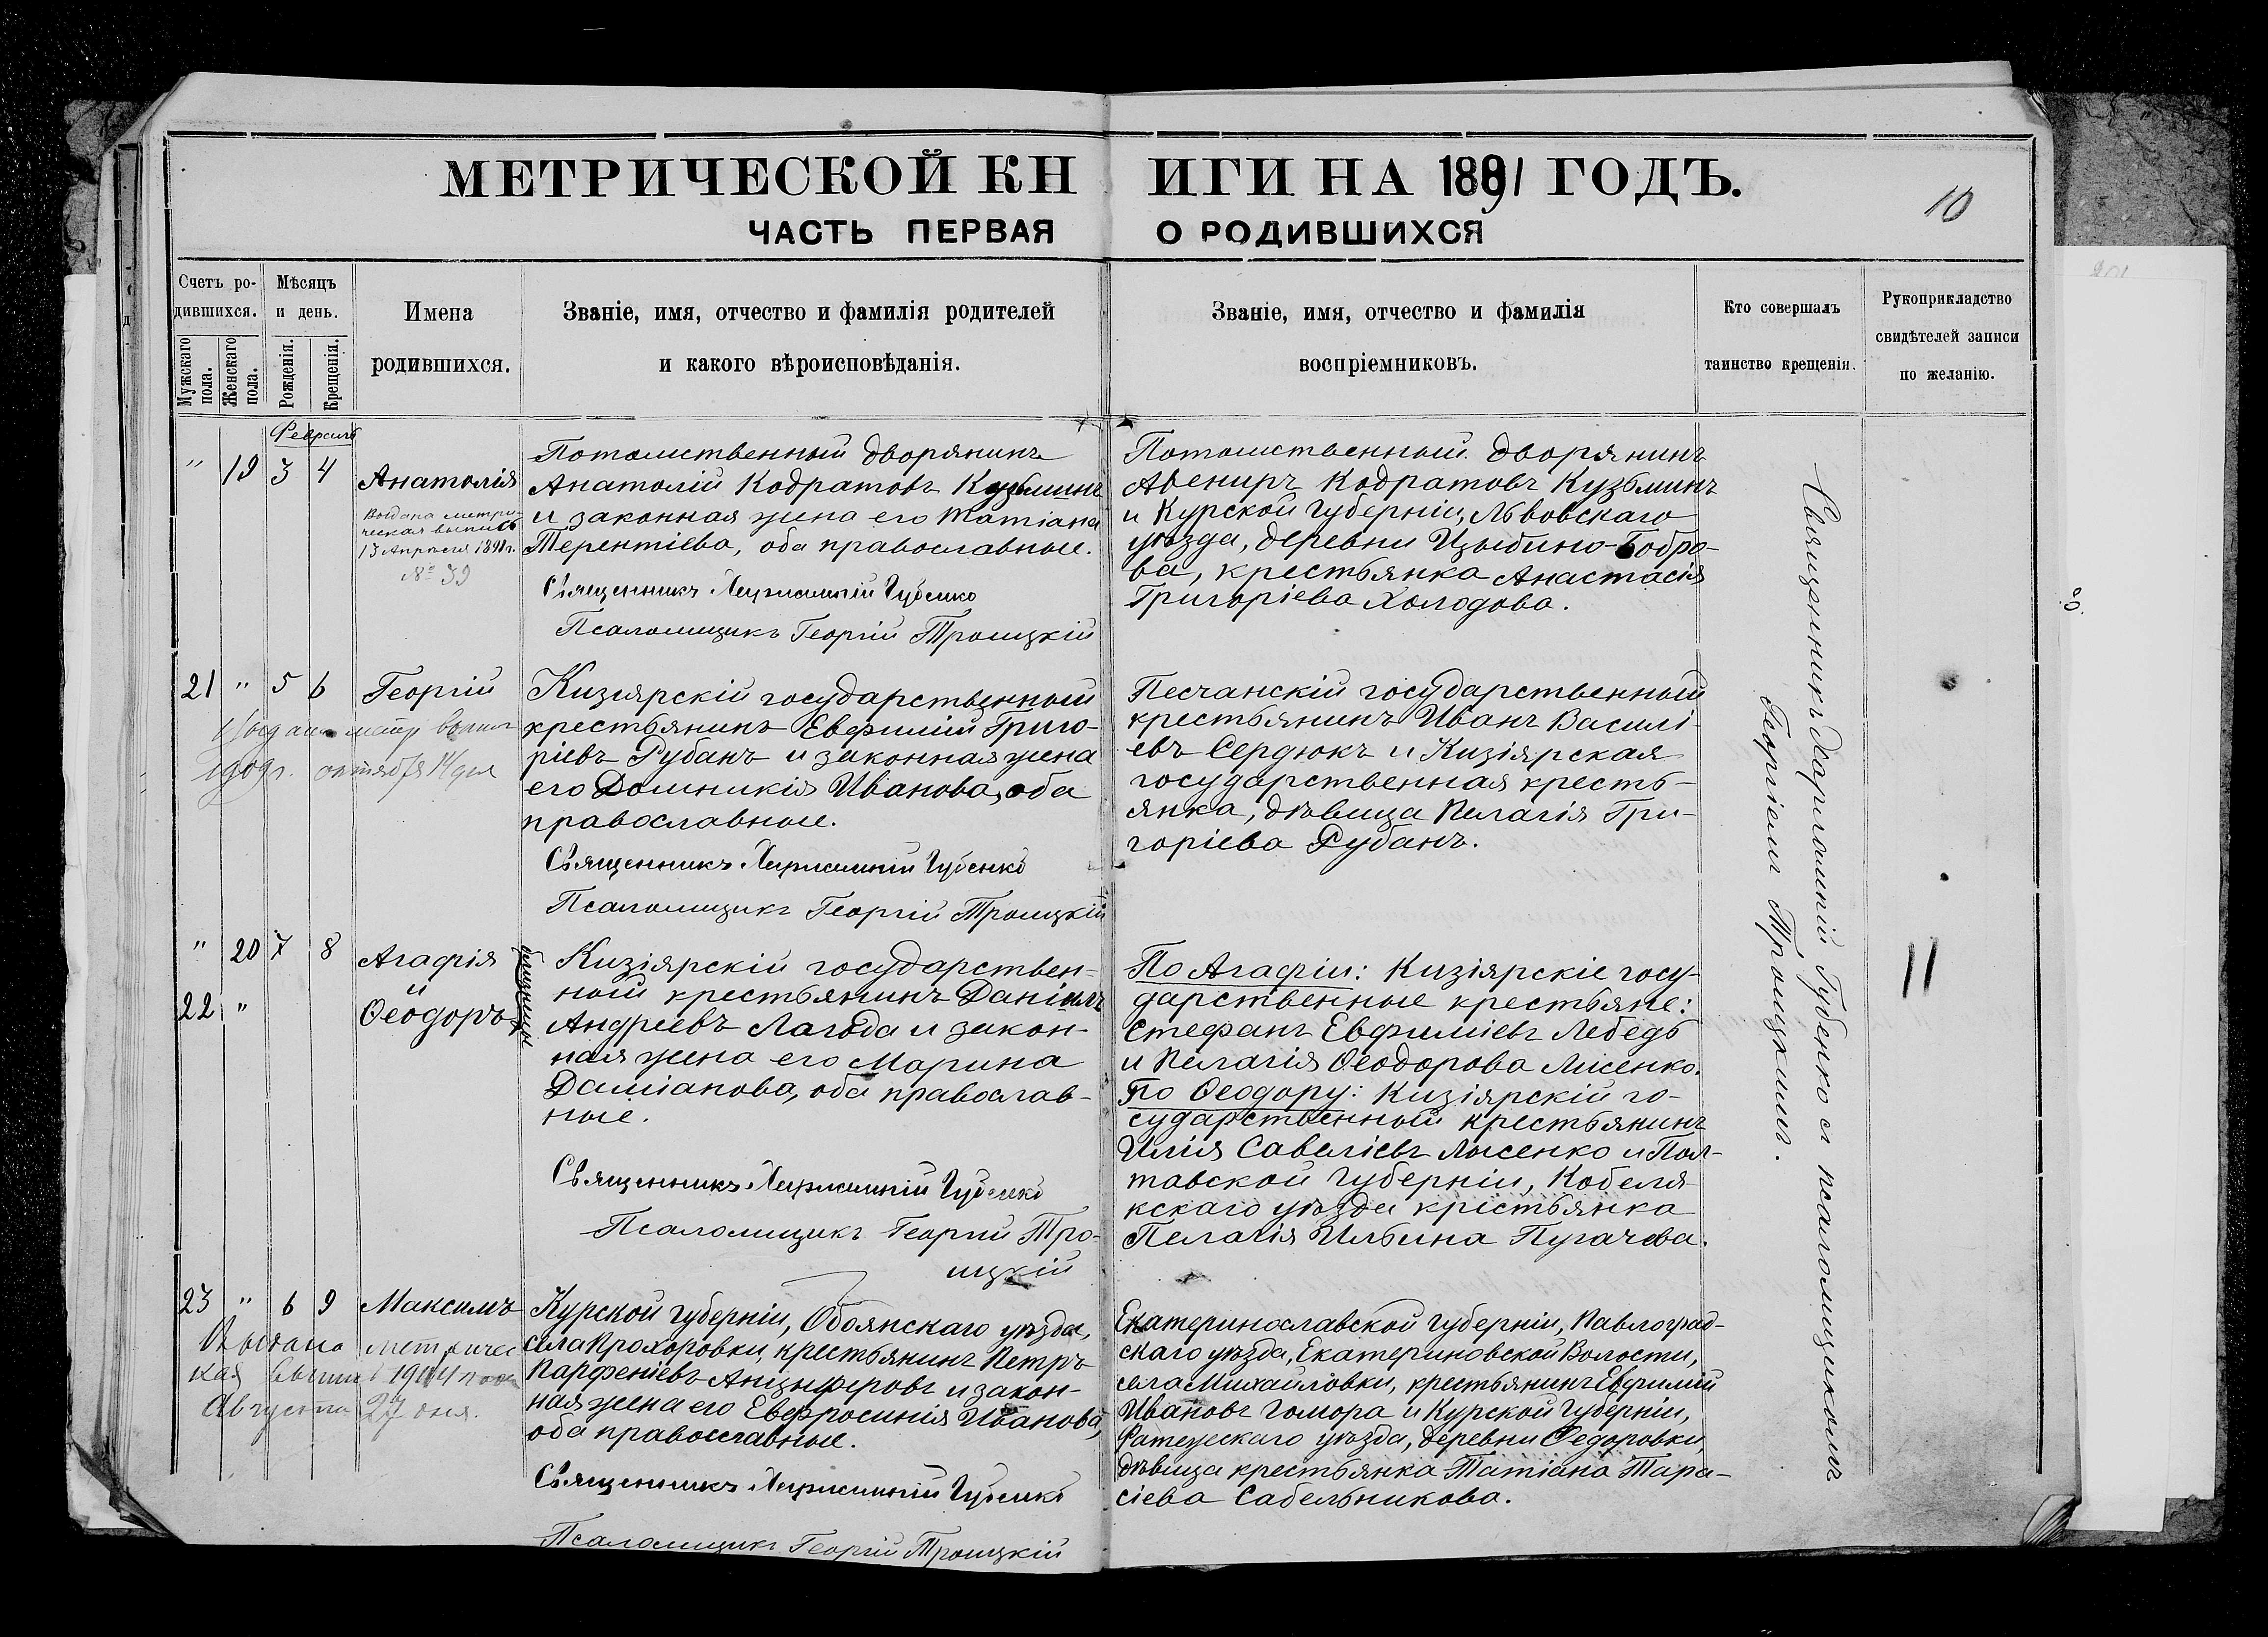 МЕТРИЧЕСКОЙ КНИГИ НА 1891 ГОДЪ.
10
ЧАСТЬ ПЕРВАЯ О РОДИВШИХСЯ
Счетъ ро-
дившихся.
Мужскаго пола.
Женскаго пола.
Мѣсяцъ
и день.
Рожденія.
Крещенія.
Имена
родившихся.
Званіе, имя, отчество и фамилія родителей
и какого вѣроисповѣданія.
Званіе, имя, отчество и фамилія
воспріемниковъ.
Кто совершалъ
таинство крещенія.
Рукоприкладство
свидѣтелей записи
по желанію.
Февраль
" 19 3 4
Анатолія
Выдана метри-
ческая выпись
13 Апрѣля 1898 г.
№ 39
Потомственный дворянинъ
Анатолій Кодратовъ Кузьминъ
и законная жена его Татіана
Терентіева, оба православные.
Священникъ Харлампій Губенко
Псаломщикъ Георгій Троицкій
Потомственный дворянинъ
Авениръ Кодратовъ Кузьминъ
и Курской губерніи, Львовскаго
уѣзда, деревни Цыбино-Бобро-
ва, крестьянка Анастасія
Григоріева Холодова.
21 " 5 6
Георгій
Выдана метр выпись
1909 г. октября 14 дня
Кизіярскій государственный
крестьянинъ Евфимій Григо-
ріевъ Рубанъ и законная жена
его Домникія Иванова, оба
православные.
Священникъ Харлампій Губенко
Псаломщикъ Георгій Троицкій
Песчанскій государственный
крестьянинъ Иванъ Василі-
евъ Сердюкъ и Кизіярская
государственная кресть-
янка, дѣвица Пелагія Гри-
горіева Рубанъ.
" 20 7 8
Агафія
22 "
Ѳеодоръ
близнецы
Кизіярскій государствен-
ный крестьянинъ Даніилъ
Андреевъ Лагода и закон-
ная жена его Марина
Даміанова, оба православ-
ные.
Священникъ Харлампій Губенко
Псаломщикъ Георгій Тро-
ицкій
По Агафіи: Кизіярскіе госу-
дарственные крестьяне:
Стефанъ Евфиміевъ Лебедь
и Пелагія Ѳеодорова Лисенко.
По Ѳеодору: Кизіярскій го-
сударственный крестьянинъ
Илія Савеліевъ Лысенко и Пол-
тавской губерніи, Кобеля
кскаго уѣзда крестьянка
Пелагія Ильина Пугачева.
11
23 " 6 9
Максимъ
Выдана метричес
кая выпись 1914 года
Августа 27 дня.
Курской губерніи, Обоянскаго уѣзда,
села Прохоровки, крестьянинъ Петръ
Парфеніевъ Анцыферовъ и закон-
ная жена его Евфросинія Иванова,
оба православные.
Священникъ Харлампій Губенко
Псаломщикъ Георгій Троицкій
Екатеринославской губерніи, Павлоград-
скаго уѣзда, Екатериновской Волости,
села Михайловки, крестьянинъ Евфимій
Ивановъ Гомора и Курской губерніи,
уѣзда, деревни Ѳедоровки,
дѣвица крестьянка Татіана Тара-
сіева Сабельникова.
Священникъ Харлампій Губенко съ псаломщикомъ
Георгіемъ Троицкимъ.